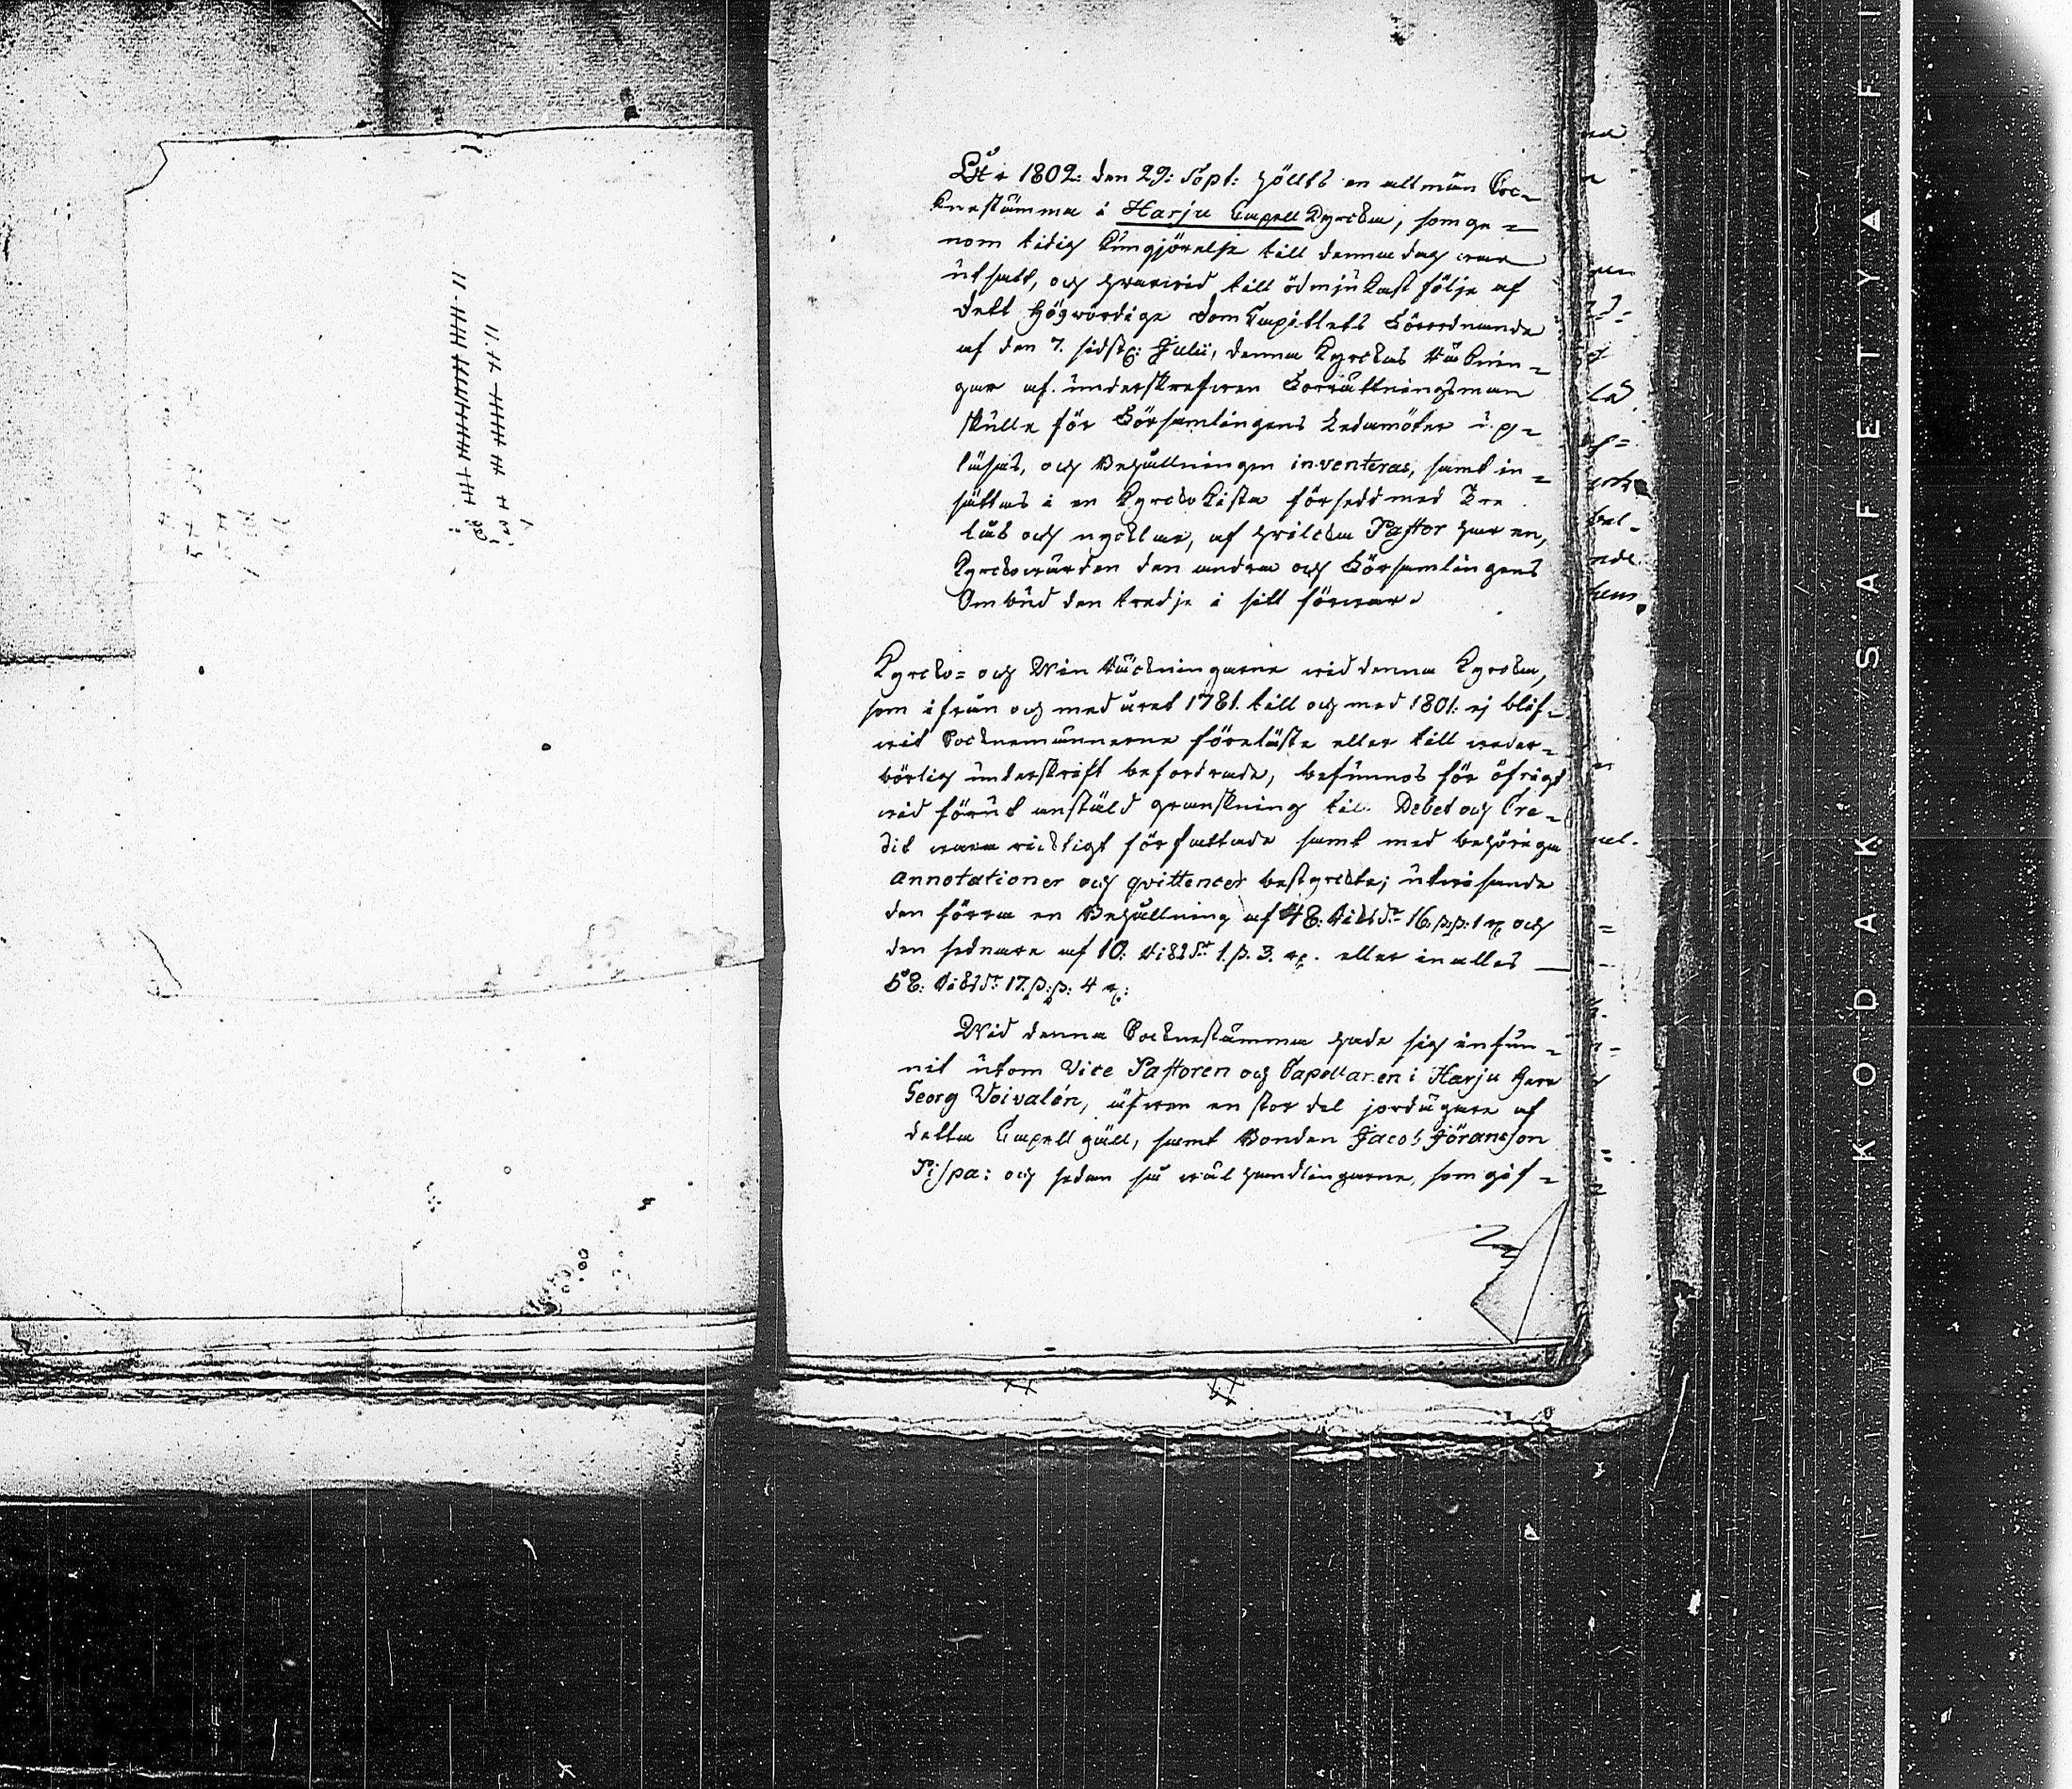 År 1802. den 29: Sept: hölts en allmän Soc-
knestämma i Harju Capell Kyrcka, som ge=
nom tidig kungjörelse till denna dag war
utsatt, och hwarwid till ödmjukast följe af
dett Högwördige DomCapitlets Förordnande
af den 7. sidstl: Julii, denna Kyrckas Räknin=
gar af underskrefwen Förrättningsman
skulle för Församlingens Ledamöter up=
läsas, och Behållningen inventeras, samt in=
sättas i en Kyrcko Kista försedd med Tre
lås och nycklar, af hvilcka Pastor har en,
Kyrckowärden den andra och Församlingens
Ombud den tredje i sitt förwar.
Kyrcko= och Win Räckningarne wid denna Kyrcka,
som ifrån och med året 1781. till och med 1801. ej blif=
wit Socknemännerne föreläste eller till weder=
börlig underskrift befordrade, befunnos för öfrigt
wid förut anstäld granskning till Debet och Cre=
dit wara ricktigt författade samt med behöriga
annotationer och qvittencer bestyrckte; utwisande
den förra en Behållning af 48. Riksdr 16. ß.ß. 1 r. och
den sednare af 10: Riksdr 1. ß. 3. r. eller in alles
58: Riksdr 17. ß:ß: 4 r:
Wid denna Socknestämma hade sig infun=
nit utom Vice Pastoren och Capellanen i Harju Herr
Georg Voivalén, äfwen en stor del jordägare af
detta Capell gäll, samt Bonden Jacob Jöransson
Pispa: och sedan så wäl handlingarne, som gif=
KODAK SAFETY ▲ FI